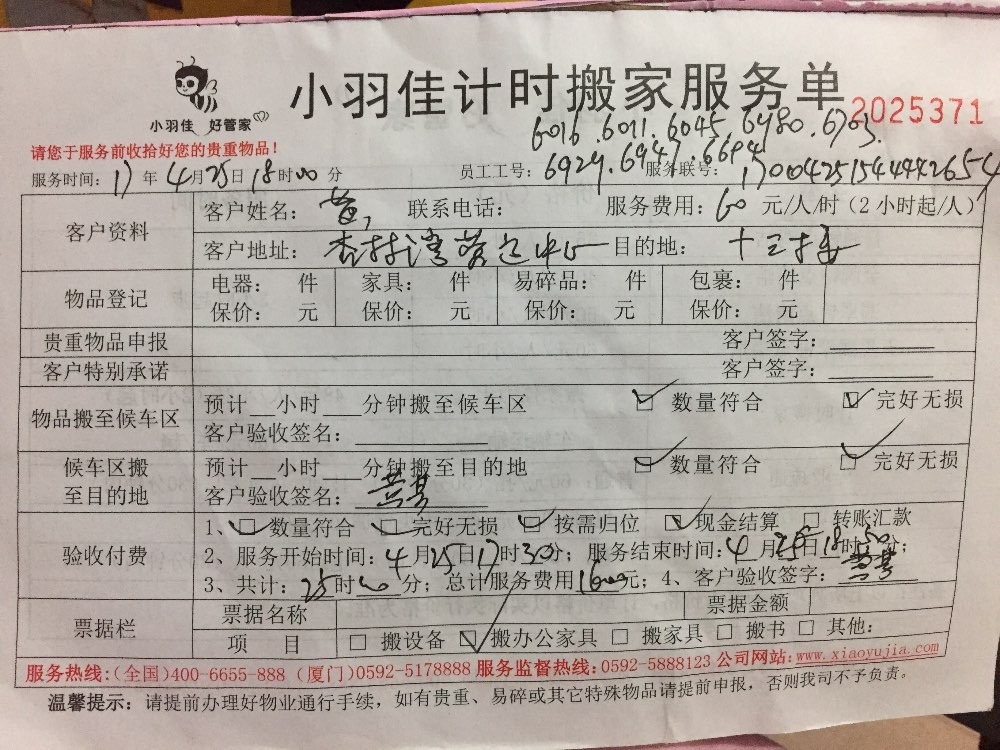 小羽佳计时搬家服务单
小羽佳 好管家
2025371
6016.6011.6045.6480.6703.
请您于服务前收拾好您的贵重物品！
6929.6947.6694
服务时间：17年4月25日18时00分 员工工号： 服务联号：
客户资料 客户姓名：黄 联系电话： 服务费用：60元/人/时（2小时起/人）
客户地址：杏林湾营运中心 目的地：十三楼
物品登记 电器： 件 家具： 件 易碎品： 件 包裹： 件
保价： 元 保价： 元 保价： 元 保价： 元
贵重物品申报 客户签字：
客户特别承诺 客户签字：
物品搬至候车区 预计 小时 分钟搬至候车区 数量符合 完好无损
客户验收签名：
候车区搬至目的地 预计 小时 分钟搬至目的地 数量符合 完好无损
客户验收签名：
验收付费 1、数量符合 完好无损 按需归位 现金结算 转账汇款
2、服务开始时间：4月25日17时30分；服务结束时间：4月25日18时30分；
3、共计：25时00分；总计服务费用1600元；4、客户验收签字：
票据栏 票据名称 票据金额
项目 搬设备 搬办公家具 搬家具 搬书 其他：
服务热线：(全国)400-6655-888 (厦门)0592-5178888 服务监督热线：0592-5888123 公司网站：www.xiaoyujia.com
温馨提示：请提前办理好物业通行手续，如有贵重、易碎或其它特殊物品请提前申报，否则我司不予负责。